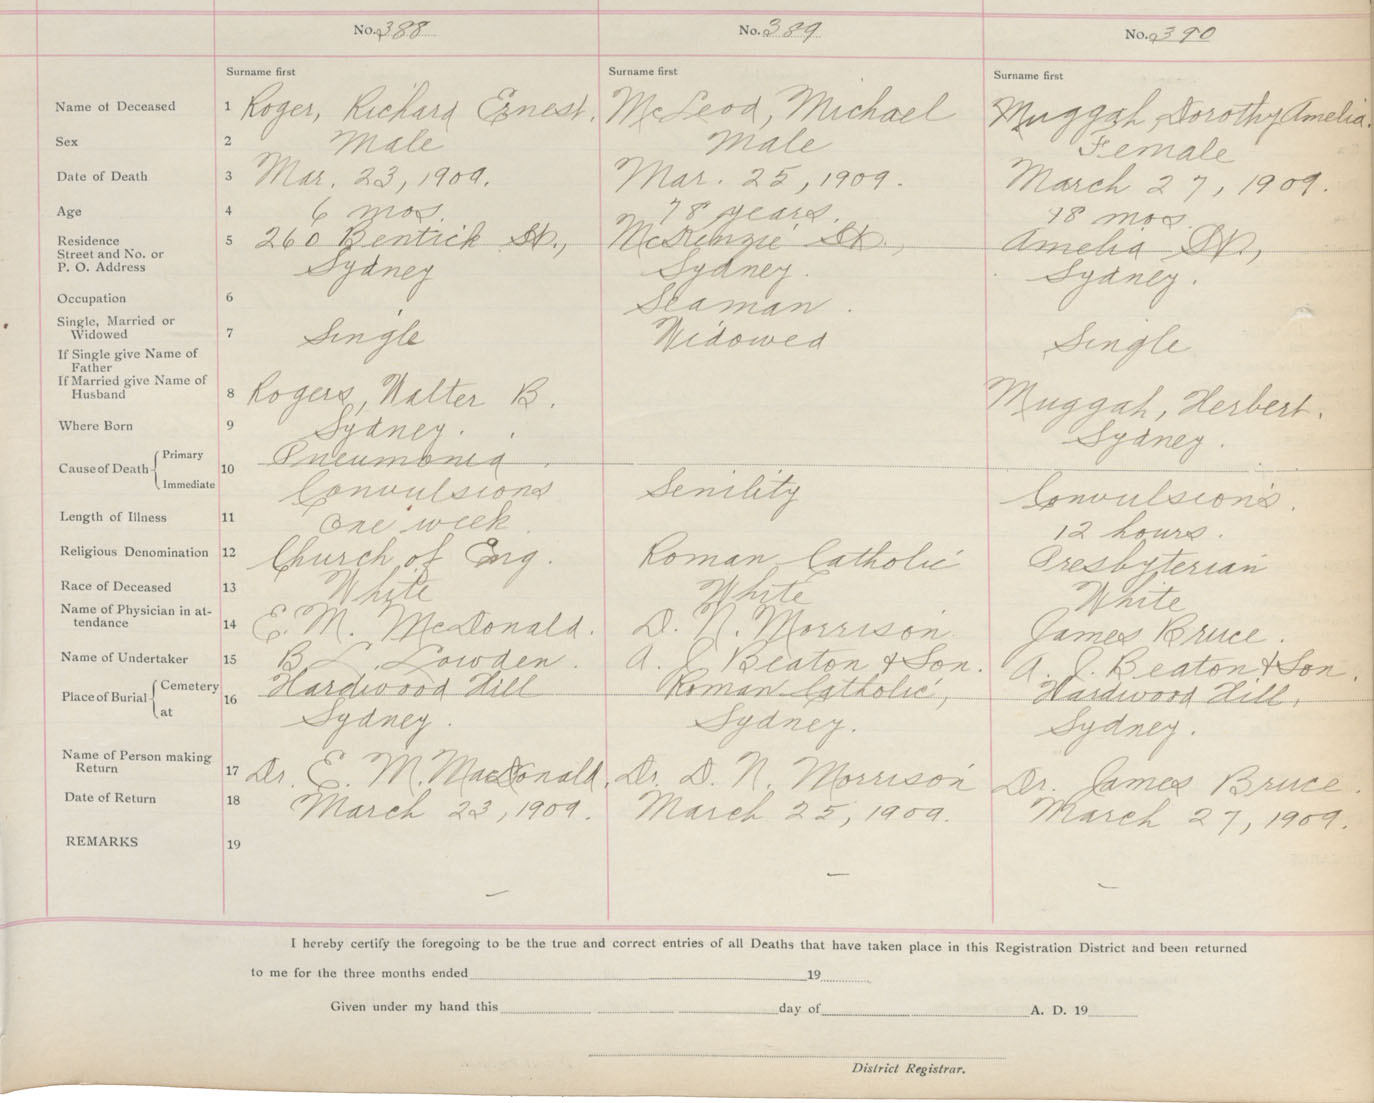 No. 388 No. 389 No. 390
Surname first Surname first Surname first
Name of Deceased 1 Roger, Richard Ernest. McLeod, Michael Muggah, Dorothy Amelia.
Sex 2 Male Male Female
Date of Death 3 Mar. 23, 1909. Mar. 25, 1909. March 27, 1909.
Age 4 6 mos. 78 years. 18 mos.
Residence 5 260 Bentick St., McKenzie St., Amelia St.,
Street and No. or
P. O. Address Sydney Sydney. Sydney.
Occupation 6 Seaman.
Single, Married or
Widowed 7 Single Widowed Single
If Single give Name of
Father
If Married give Name of
Husband 8 Rogers, Walter B. Muggah, Herbert.
Where Born 9 Sydney. Sydney.
Cause of Death Primary 10 Pneumonia.
Immediate Convulsions Senility Convulsions.
Length of Illness 11 One week. 12 hours.
Religious Denomination 12 Church of Eng. Roman Catholic Presbyterian
Race of Deceased 13 White White White
Name of Physician in at-
tendance 14 E. M. McDonald. D. N. Morrison. James Bruce.
Name of Undertaker 15 B. L. Lowden. A. J. Beaton & Son. A. J. Beaton & Son.
Place of Burial Cemetery 16 Hardwood Hill Roman Catholic, Hardwood Hill,
at Sydney. Sydney. Sydney.
Name of Person making
Return 17 Dr. E. M. MacDonald. Dr. D. N. Morrison Dr. James Bruce.
Date of Return 18 March 23, 1909. March 25, 1909. March 27, 1909.
REMARKS 19
– – –
I hereby certify the foregoing to be the true and correct entries of all Deaths that have taken place in this Registration District and been returned
to me for the three months ended 19
Given under my hand this day of A. D. 19
District Registrar.